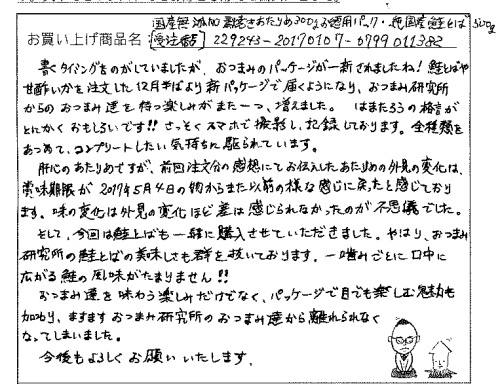 国産無添加 熟練あたりめ300gお徳用パック・純国産 鮭とば 500g
お買い上げ商品名 [受注番号] 229243-20170107-0799011382
書くタイミングをのがしていましたが、おつまみのパッケージが一新されましたね! 鮭とばや
甘酢いかを注文した12月半ばより新パッケージで届くようになり、おつまみ研究所
からのおつまみ達を待つ楽しみがまた一つ、増えました。 はまたろうの格言が
とにかくおもしろいです!! さっそくスマホで撮影し、記録しております。全種類を
あつめて、コンプリートしたい気持ちに駆られています。
肝心のあたりめですが、前回注文分の感想にてお伝えしたあたりめの外見の変化は、
賞味期限が2017年5月4日の物からまた以前の様な感じに戻ったと感じており
ます。味の変化は外見の変化ほど差は感じられなかったのが不思議でした。
そして、今回は鮭とばも一緒に購入させていただきました。やはり、おつまみ
研究所の鮭とばの美味しさも群を抜いております。一噛みごとに口中に
広がる鮭の風味がたまりません!!
おつまみ達を味わう楽しみだけでなく、パッケージで目でも楽しむ魅力も
加わり、ますますおつまみ研究所のおつまみ達から離れられなく
なってしまいました。
今後もよろしくお願いいたします.